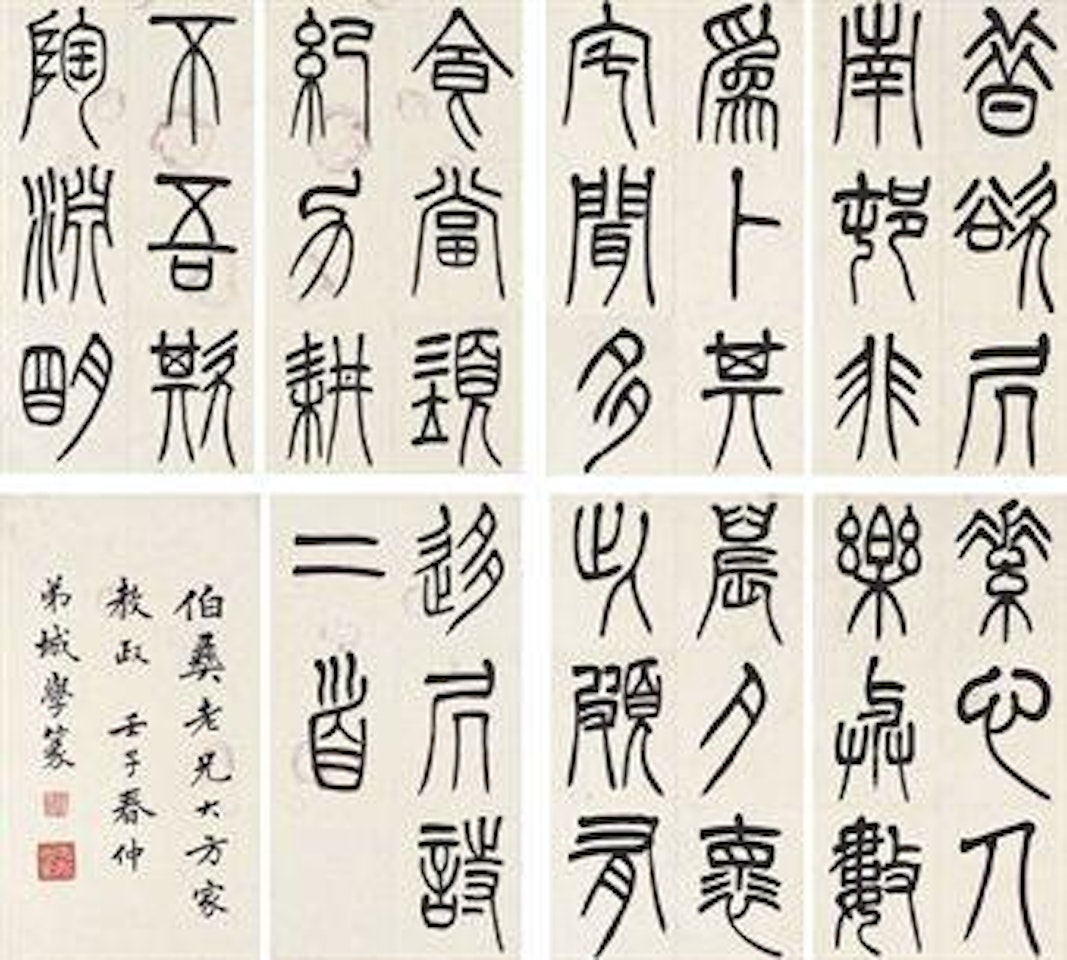 昔欲居
南邨非
爲卜其
宅聞多
素心人
樂與數
晨夕懷
此頗有
食當須
紀力耕
不吾欺
陶淵明
移居詩
二首
伯彝老兄大方家
教政 壬子春仲
弟城學篆